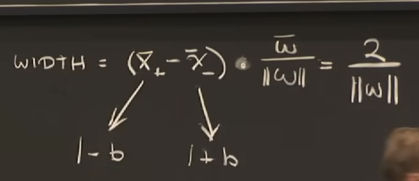 WIDTH = (x̄₊ - x̄₋) · w̄/||w|| = 2/||w||
1-b 1+b